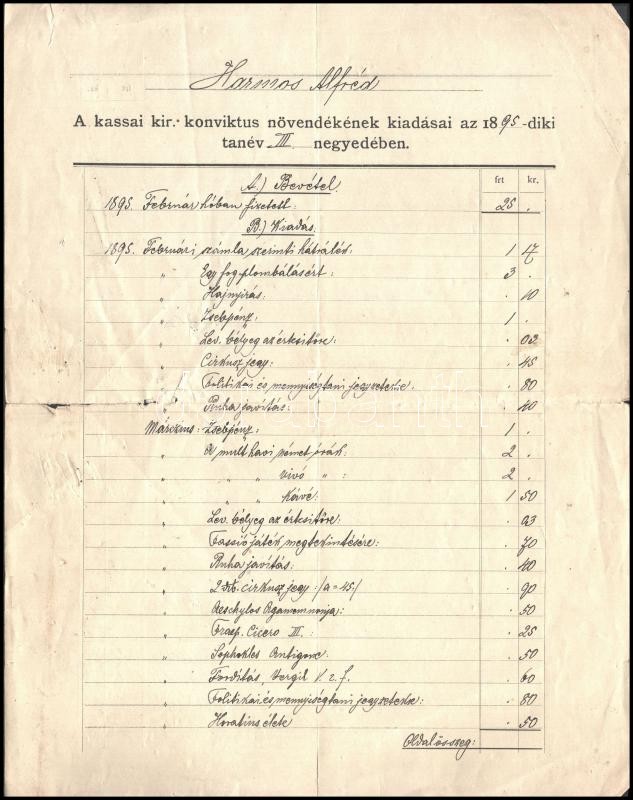 Harmos Alfréd
A kassai kir. konviktus növendékének kiadásai az 1895-diki
tanév III negyedében.
frt kr.
A.) Bevétel.
1895. Február hóban fizetett: 25 .
B.) Kiadás.
1895. Februári számla szerinti hátralék: 1 17
" Egy fog plombálásért: 3 .
" Hajnyirás: . 10
" Zsebpénz: 1 .
" Lev. bélyeg az értesitőre: . 03
" Cirkusz jegy: . 45
" Politikai és mennyiségtani jegyzetekre: . 80
" Ruha javitás: . 40
Március: Zsebpénz: 1 .
" A mult havi német órák: 2 .
" " " vivó " : 2 .
" " " Kávé: 1 50
" Lev. bélyeg az értesitőre: . 03
" Passió játék megtekintésére: . 70
" Ruha javitás: . 40
" 2 drb. cirkusz jegy :/a = 45./ . 90
" Aeschylos Agamemnonja: . 50
" Praep. Cicero III. : . 25
" Sophokles Antigone . 50
" Forditás, Vergil V. z. f. . 60
" Politikai és mennyiségtani jegyzetekre: . 80
" Horatius élete . 50
Oldalösszeg: